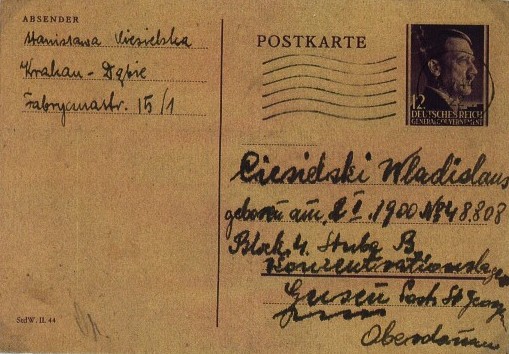 ABSENDER
Stanisława Ciesielska
Krakau - Dąbie
Fabrycznastr. 15/1
POSTKARTE
12
DEUTSCHES REICH
GENERALGOUVERNEMENT
Ciesielski Wladislaus
geboren am, 2 I. 1900 No 48808
Block 4. Stuba B
Konzentrationslager
Gusen Post St Georgen
Oberdonau
StdW. II. 44